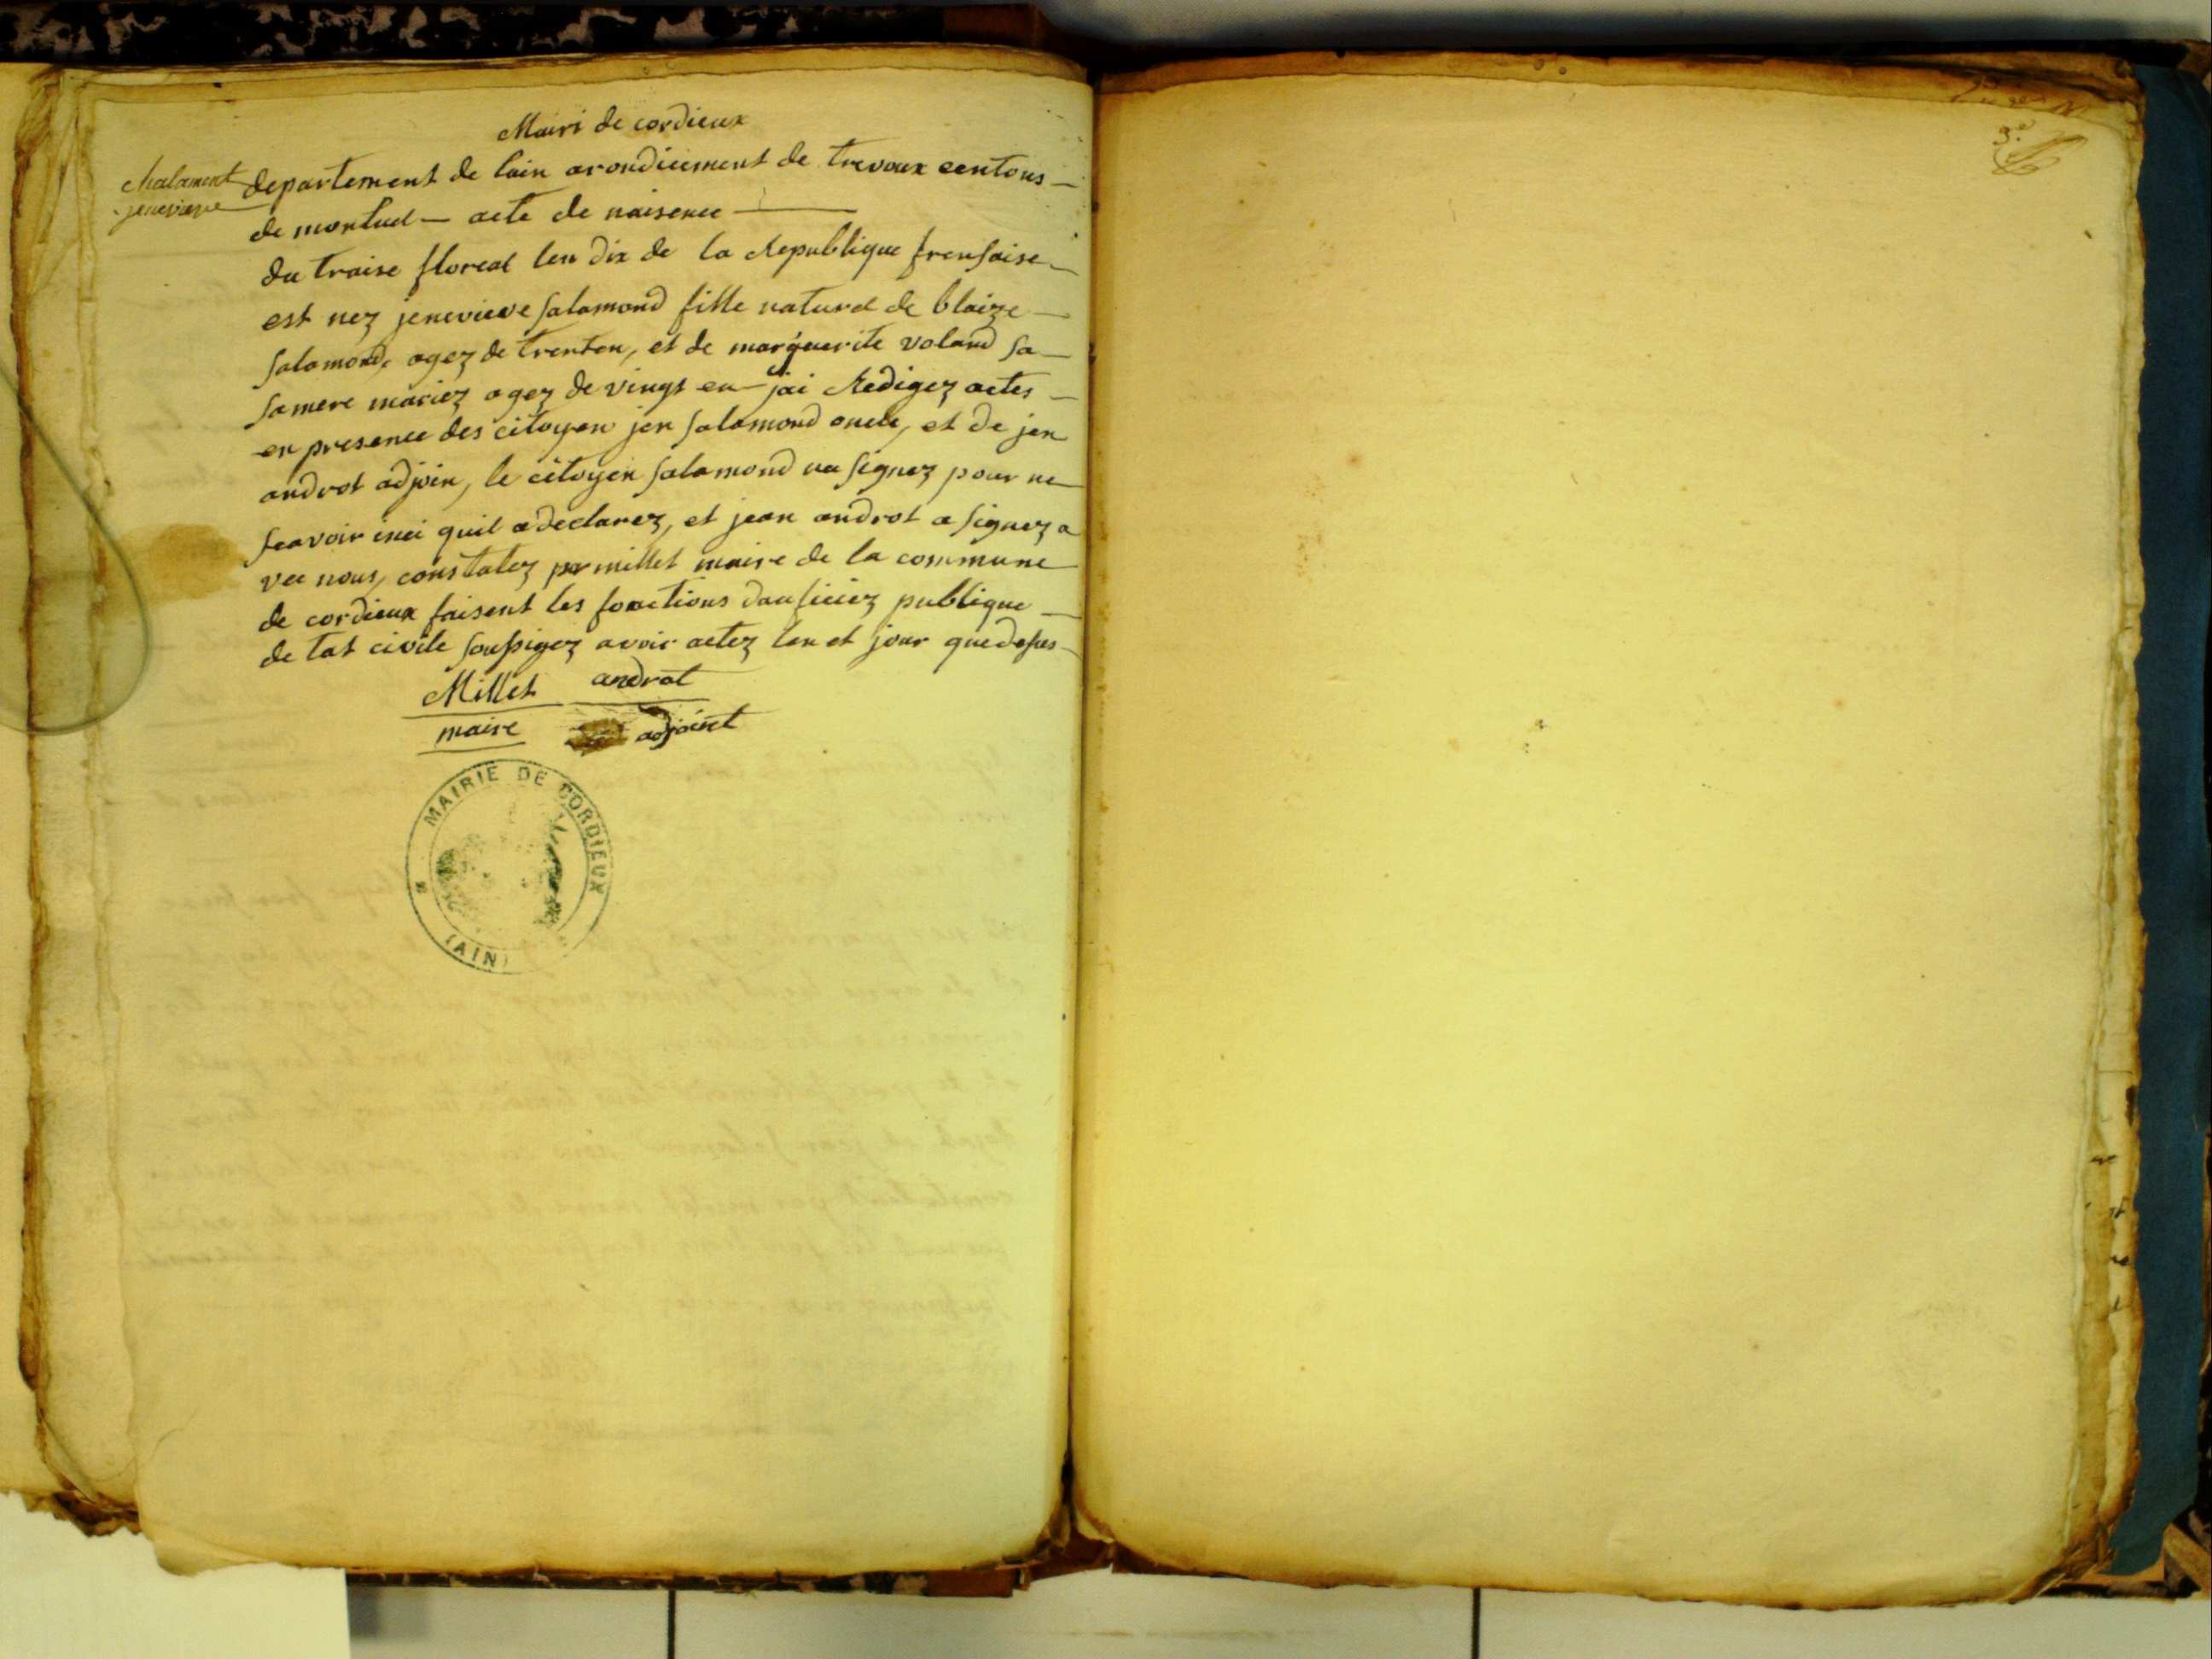 Mairi de cordieux
chalament
jenevieve
departement de lain arondicement de trevoux centons
de montuel — acte de naisence
du traise floreal len dix de la Republique frensaise
est nez jenevieve salamond fille naturel de blaize
salamond, agez de trenten, et de marguerite voland sa
sa mere mariez agez de vingt en jai Redigez actes
en presence des citoyen jen salamond oncle, et de jen
androt adjoin, le citoyen salamond na signez pour ne
seavoir insi quil a declarez, et jean androt a signez a
vec nous, constatez par millet maire de la commune
de cordieux faisent les fonctions dauficiez publique
de tat civile soussigez avoir actez len et jour que desus
Millet androt
maire adjoint
MAIRIE DE CORDIEUX
(AIN)
3.e